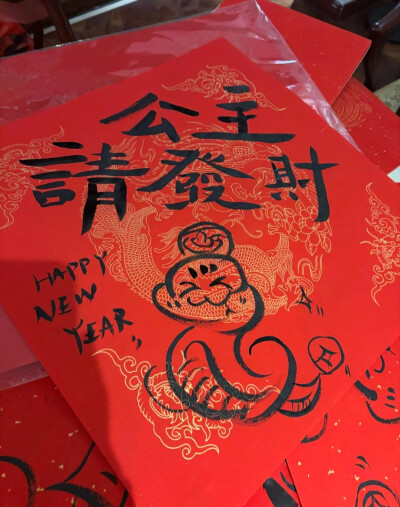 公主
請發財
HAPPY
NEW
YEAR